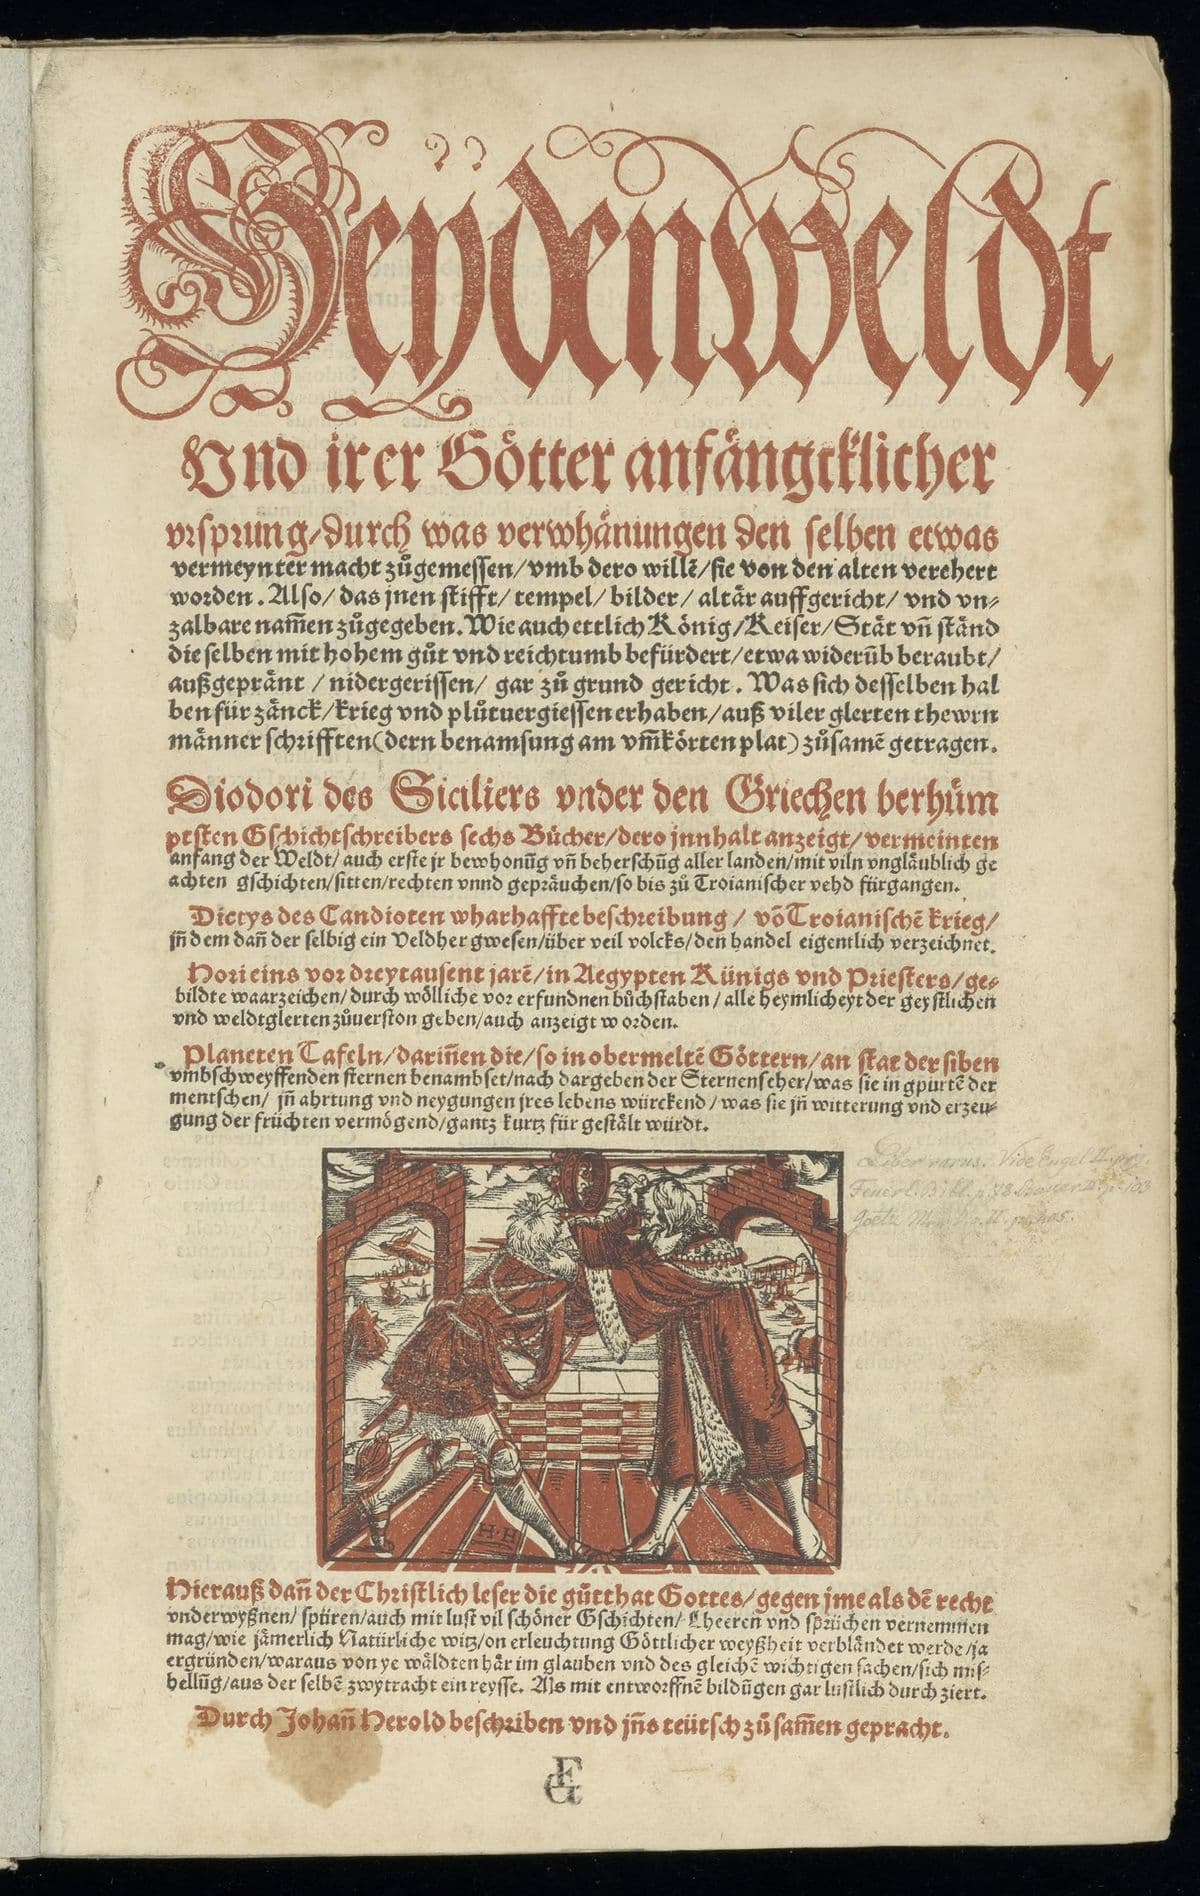 Heÿdenweldt
Vnd irer Götter anfängcklicher
vrsprung/durch was verwhänungen den selben etwas
vermeynter macht zůgemessen/vmb dero willẽ/sie von den alten verehert
worden. Also/ das jnen stifft/ tempel/ bilder/ altär auffgericht/ vnd vn⸗
zalbare nam̃en zůgegeben. Wie auch ettlich König/Keiser/Stät vñ ständ
die selben mit hohem gůt vnd reichtumb befürdert/etwa widerũb beraubt/
außgepränt / nidergerissen/ gar zů grund gericht. Was sich desselben hal
ben für zänck/krieg vnd plůtuergiessen erhaben/auß viler glerten thewrn
männer schrifften(dern benamsung am vm̃körten plat) zůsamẽ getragen.
Diodori des Siciliers vnder den Griechen berhüm
ptsten Gschichtschreibers sechs Bücher/dero jnnhalt anzeigt/vermeinten
anfang der Weldt/auch erste jr bewhonũg vñ beherschũg aller landen/mit viln vngläublich ge
achten gschichten/sitten/rechten vnnd gepräuchen/so bis zů Troianischer vehd fürgangen.
Dictys des Candioten wharhaffte beschreibung / võ Troianischẽ krieg/
jñ dem dañ der selbig ein Veldher gwesen/über veil volcks/den handel eigentlich verzeichnet.
Hori eins vor dreytausent jarẽ/in Aegypten Künigs vnd Priesters/ge⸗
bildte waarzeichen/durch wölliche vor erfundnen bůchstaben / alle heymlicheyt der geystlichen
vnd weldtglerten zůuerston geben/auch anzeigt worden.
Planeten Tafeln/dariñen die/so in obermeltẽ Göttern/an stat der siben
vmbschweyffenden sternen benambset/nach dargeben der Sternenseher/was sie in gpurtẽ der
mentschen/ jñ ahrtung vnd neygungen jres lebens würckend / was sie jñ witterung vnd erzeu⸗
gung der früchten vermögend/gantz kurtz für gestält würdt.
Liber rarus. Vide Engel
H·H
Hierauß dañ der Christlich leser die gůtthat Gottes/gegen jme als dẽ recht
vnderwyßnen/ spüren/auch mit lust vil schöner Gschichten/ Lheeren vnd sprüchen vernemmen
mag/wie jämerlich Natürliche witz/on erleuchtung Göttlicher weyßheit verbländet werde/ja
ergründen/waraus von ye wäldten här im glauben vnd des gleichẽ wichtigen sachen/sich mis⸗
hellũg/aus der selbẽ zwytracht ein reysse. Als mit entworffnẽ bildũgen gar lustlich durch ziert.
Durch Johañ Herold beschriben vnd jñs teütsch zů sam̃en gepracht.